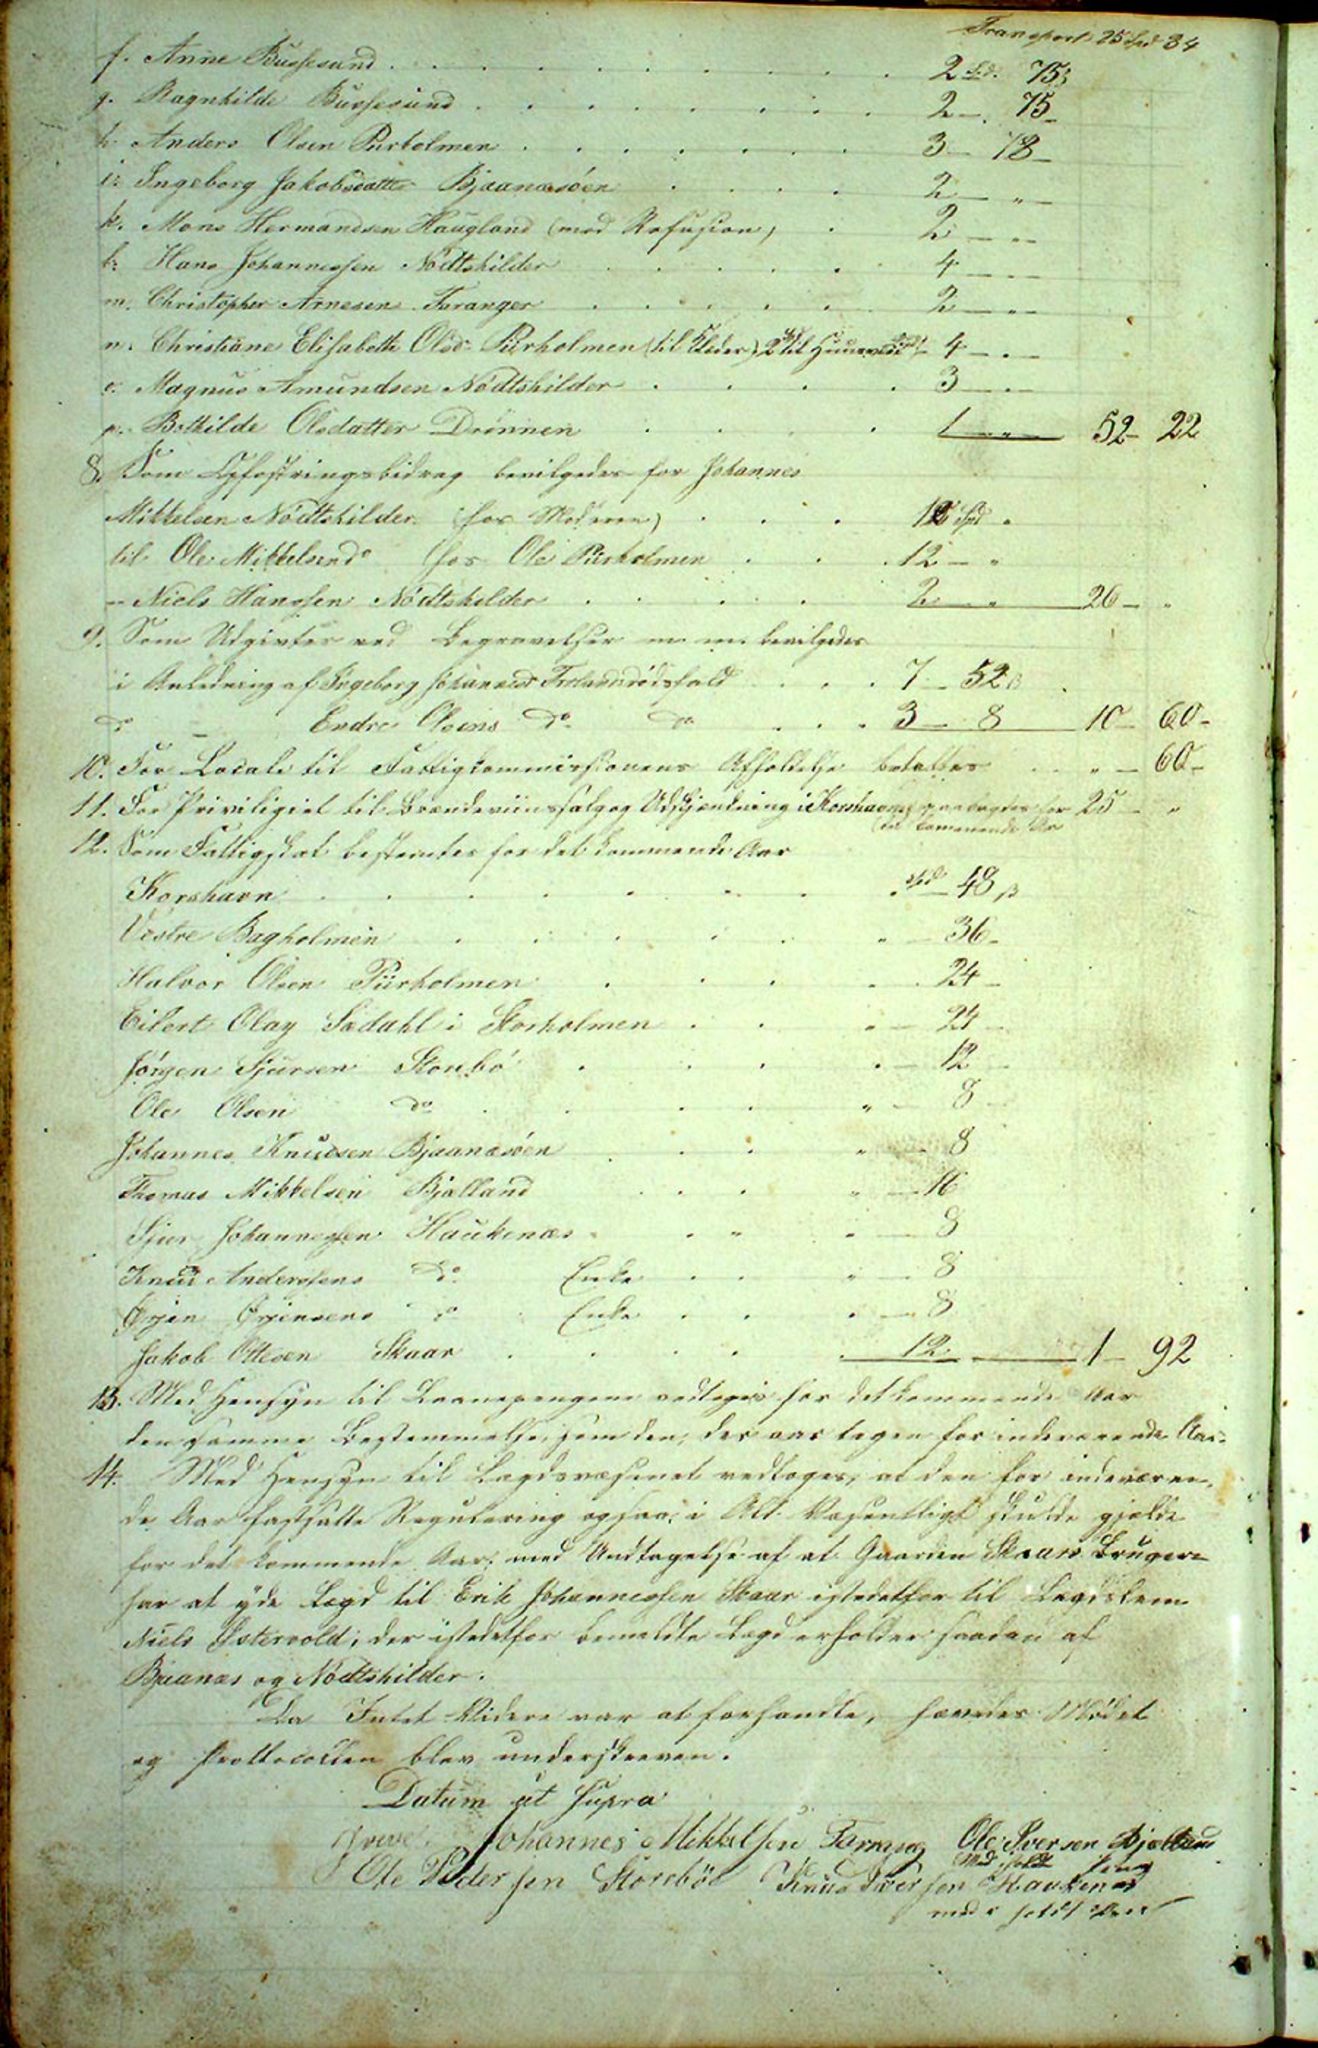 Transport 25 Spd 84
f. Anne Bussesund . . . 2 Spd. 75 ß
g. Ragnhilde Bussesund . . . 2 - 75 -
h. Anders Olsen Purholmen . . . 3 - 78 -
i. Ingeborg Jakobsdatter Bjaanæsöen . . . 2 - " -
k. Mons Hermandsen Haugland (mod Refusion) . 2 - " -
l. Hans Johannessen Nödtshilder . . . 4 - " -
m. Christopher Arnesen Faranger . . . 2 - " -
n. Christiane Elisabeth Olsd. Purholmen (til Klæder) 2 Spd til Huusværelse 4 - " -
o. Magnus Amundsen Nödtshilder . . . 3 - " -
p. Bothilde Olsdatter Drönnen . . . 1 - " - 52 - 22
8. Som Opfostringsbidrag bevilgedes for Johannes
Mikkelsen Nödtshilder (hos Moderen) . . . 12 Spd "
til Ole Mikkelsen do hos Ole Purholmen . . . 12 - "
- Niels Hanssen Nödtshilder . . . 2 - " 26 - "
9. Som Udgivter ved Begravelser m. m. bevilgedes
i Anledning af Ingeborg Johannesd. Trelandsrødsfald . . . 7 - 52 ß
do - Endre Olsens do do . . . 3 - 8 10 - 60 -
10. For Locale til Fattigkommissionens Afholdelse betaltes . . " - 60 -
11. For Priviligiet til Brændeviinssalg og Udskjænkning i Korshavn paaregnes for 25 - "
det kommende Aar
12. Som Fattigskat bestemtes for det kommende Aar
Korshavn . . . " Spd 48 ß
Vestre Bagholmen . . . " - 36 -
Halvor Olsen Purholmen . . . 24 -
Eilert Olay Sædahl i Storholmen . . . " - 24 -
Jörgen Sjursen Storebö . . . " - 12 -
Ole Olsen do . . . " - 8 -
Johannes Knudsen Bjaanæsöen . . . " - 8
Thomas Mikkelsen Bjælland . . . " - 16
Sjur Johannessen Haukenæs . . . " - 8
Knud Anderssens do Enke . . " - 8
Ørjen Ørjensens do Enke . . " - 8
Jakob Ottesen Skaar . . . 12 1 - 92
13. Med Hensyn til Laanepengene vedtoges for det kommende Aar
den samme Bestemmelse, som den, der var tagen for indeværende Aar.
14. Med Hensyn til Lægdsvæsenet vedtoges, at den for indeværen-
de Aar fastsatte Regulering ogsaa i Alt Væsentligt skulde gjælde
for det kommende Aar, med Undtagelse af at Gaarden Skaars Brugere
har at yde Lægd til Erik Johannessen Skaar istedetfor til Lægdslem
Niels Østervold, der istedetfor bemeldte Lægd erholder saadan af
Bjaanæs og Nödtshilder.
Da Intet Videre var at forhandle, hævedes Mödet
og Prottocollen blev underskreven.
Datum ut supra
Johannes Mikkelsen Ole Iversen Bjælland
Med iholdt Pen
Ole Pedersen Storebö Knud Iversen Haukenæs
med i holdt Pen